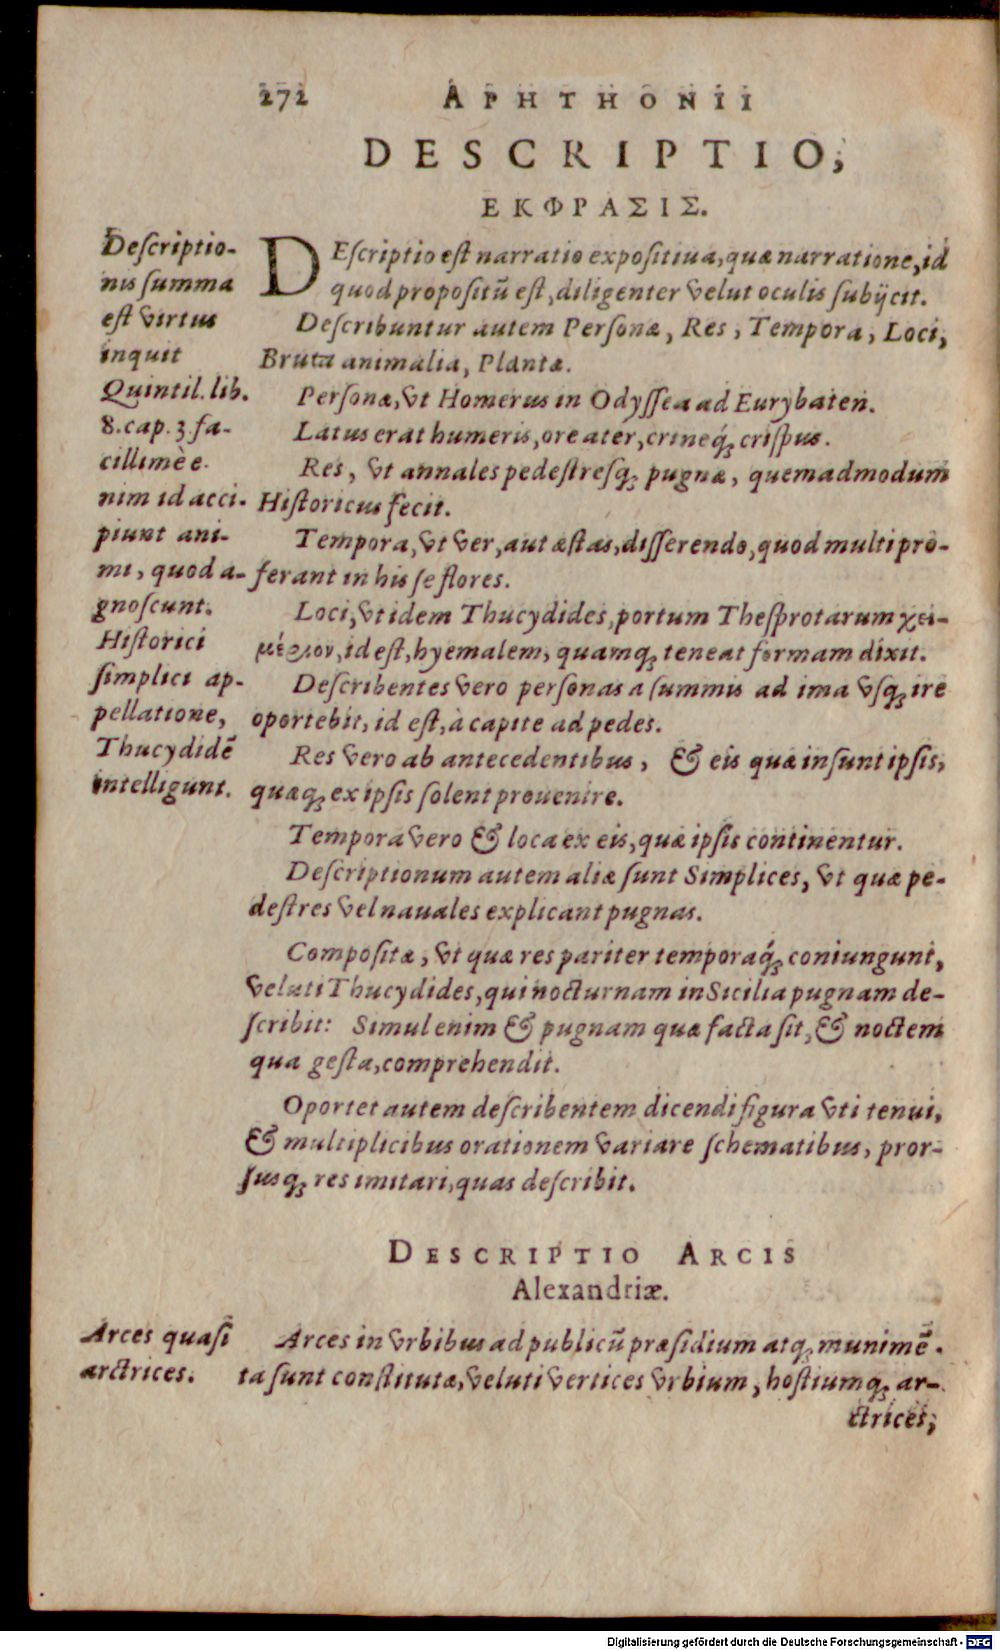 272 APHTHONII
DESCRIPTIO,
ΕΚΦΡΑΣΙΣ.
DEſcriptio eſt narratio expoſitiua, quæ narratione, id
quod propoſitū eſt, diligenter velut oculis ſubijcit.
Deſcribuntur autem Perſonæ, Res, Tempora, Loci,
Bruta animalia, Plantæ.
Perſonæ, vt Homerus in Odyſſea ad Eurybaten.
Latus erat humeris, ore ater, crineq́; criſpus.
Res, vt annales pedeſtreſq; pugnæ, quemadmodum
Hiſtoricus fecit.
Tempora, vt ver, aut æſtas, diſſerendo, quod multi pro-
ferant in his ſe flores.
Loci, vt idem Thucydides, portum Theſprotarum χει-
μέριον, id eſt, hyemalem, quamq; teneat formam dixit.
Deſcribentes vero perſonas a ſummis ad ima vſq; ire
oportebit, id eſt, à capite ad pedes.
Res vero ab antecedentibus, & eis quæ inſunt ipſis,
quæq; ex ipſis ſolent prouenire.
Tempora vero & loca ex eis, quæ ipſis continentur.
Deſcriptionum autem aliæ ſunt Simplices, vt quæ pe-
deſtres vel nauales explicant pugnas.
Compoſitæ, vt quæ res pariter temporaq́; coniungunt,
veluti Thucydides, qui nocturnam in Sicilia pugnam de-
ſcribit: Simul enim & pugnam quæ facta ſit, & noctem
qua geſta, comprehendit.
Oportet autem deſcribentem dicendi figura vti tenui,
& multiplicibus orationem variare ſchematibus, pror-
ſusq; res imitari, quas deſcribit.
DESCRIPTIO ARCIS
Alexandriæ.
Arces in vrbibus ad publicū præſidium atq; munimē-
ta ſunt conſtitutæ, veluti vertices vrbium, hoſtiumq; ar-
ctrices,
Deſcriptio-
nis ſumma
eſt virtus
inquit
Quintil. lib.
8. cap. 3. fa-
cillimè e-
nim id acci-
piunt ani-
mi, quod a-
gnoſcunt.
Hiſtorici
ſimplici ap-
pellatione,
Thucydidē
intelligunt.
Arces quaſi
arctrices.
Digitalisierung gefördert durch die Deutsche Forschungsgemeinschaft - DFG